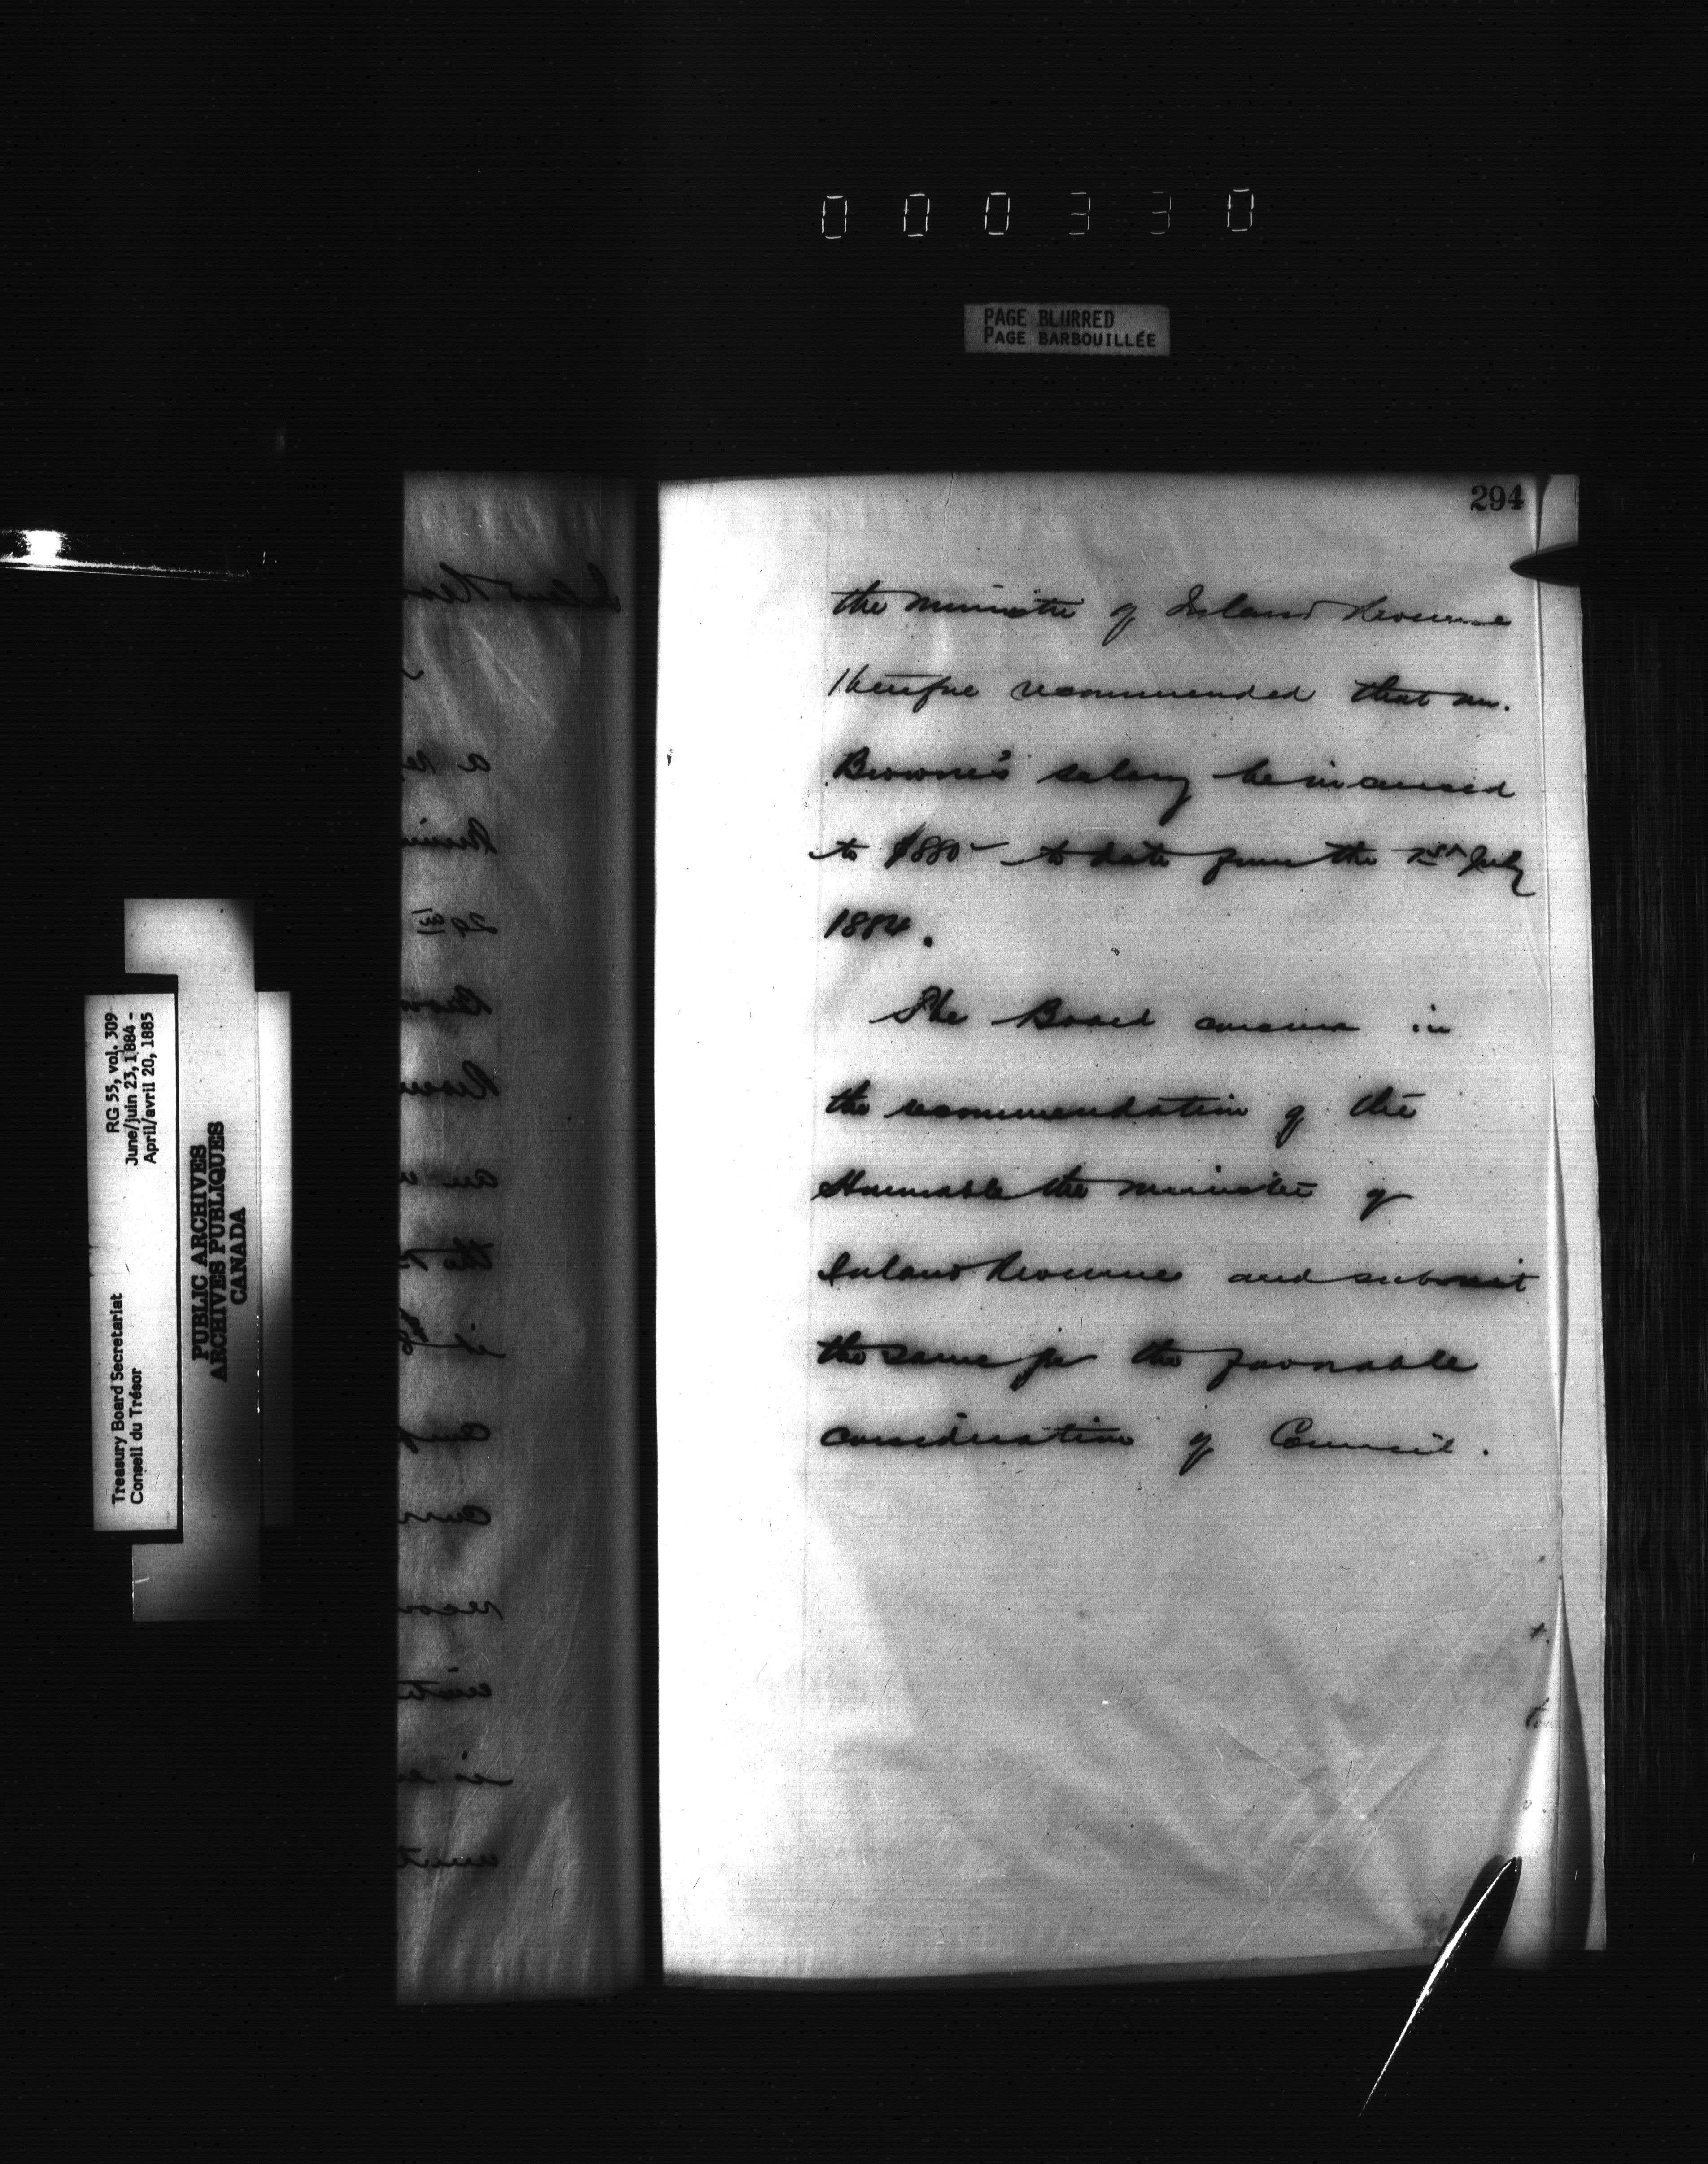 000330
PAGE BLURRED
PAGE BARBOUILLÉE
294
the Minister of Inland Revenue
therefore recommended that Mr.
Browne's salary be increased
to $880 to date from the 1st July
1884.
The Board concur in
the recommendation of the
Honorable the Minister of
Inland Revenue and submit
the same for the favorable
consideration of Council.
RG 55, vol. 309
June/juin 23, 1884 -
April/avril 20, 1885
Treasury Board Secretariat
Conseil du Trésor
PUBLIC ARCHIVES
ARCHIVES PUBLIQUES
CANADA